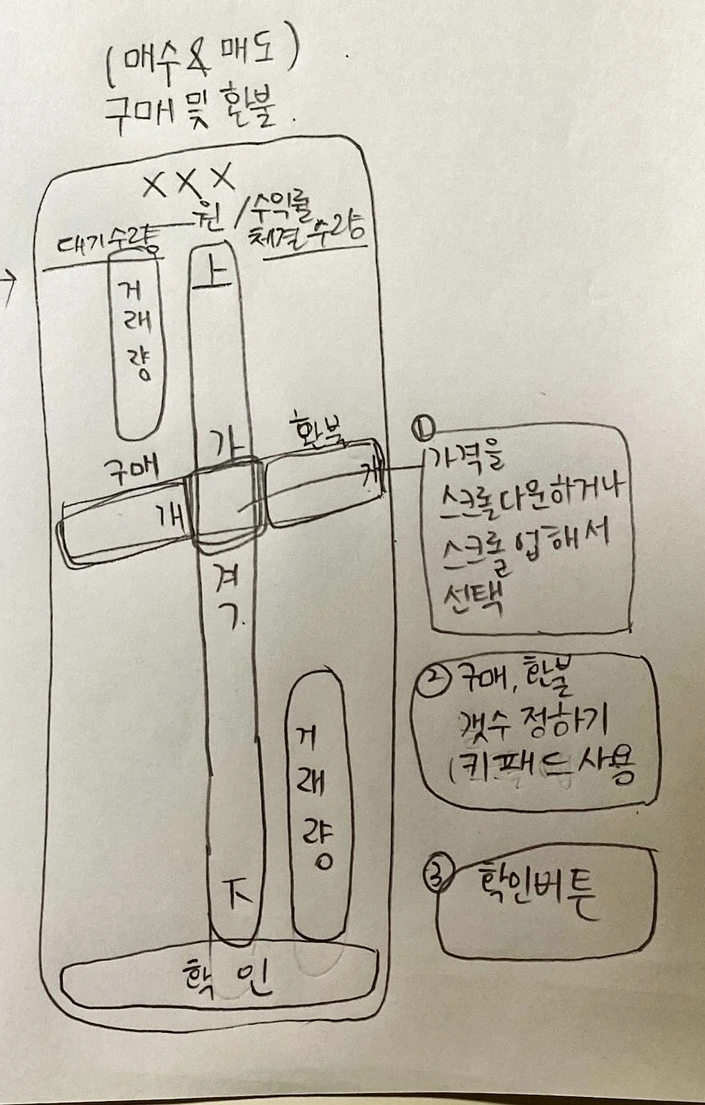 (매수 & 매도)
구매 및 환불.
XXX
원 / 수익률
대기수량
체결수량
거
래
량
上
가
격
下
구매
개
환불
개
거
래
량
확인
①
가격을
스크롤다운하거나
스크롤 업해서
선택
② 구매, 환불
갯수 정하기
(키패드 사용
③ 확인버튼